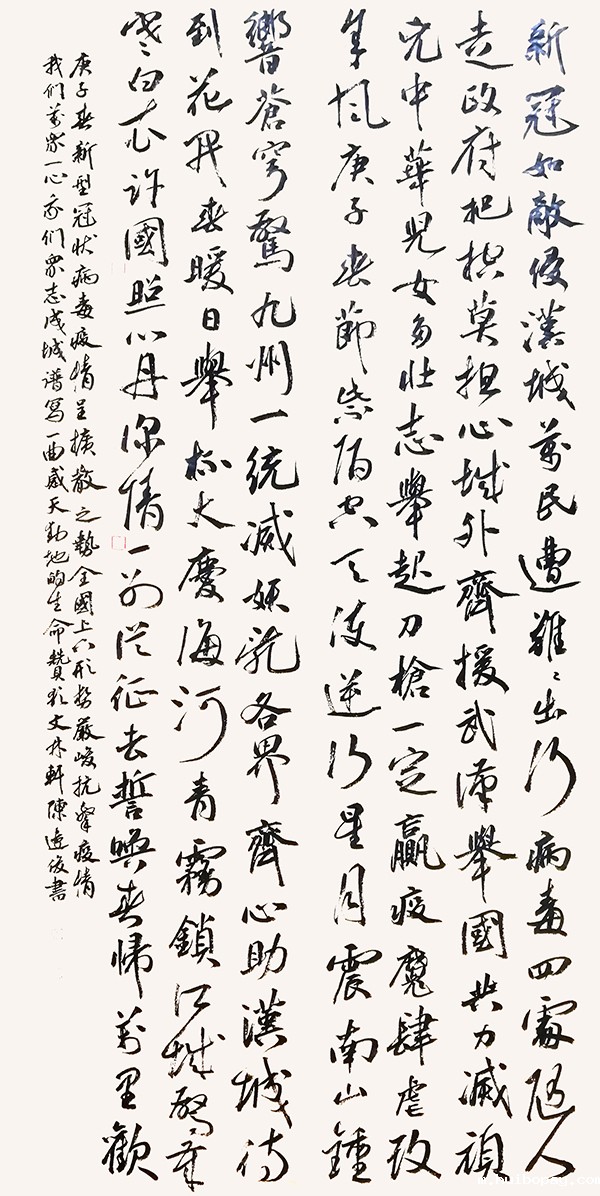 新冠如敵侵漢城萬民遭難難出行病毒四處隨人
走政府把控莫担心城外齊援武漢舉國共力滅頑
兇中華兒女多壮志舉起刀槍一定贏疫魔肆虐攻
年忙庚子春節紫陌空天使逆行星月震南山鍾
響蒼穹驚九州一統滅妖氛各界齊心助漢城待
到花開春暖日舉杯大慶海河青霧鎖江城駭
寒白衣許國照心丹深情一別從征去誓喚春歸萬里歡
庚子春新型冠状病毒疫情呈擴散之勢全國上下形勢嚴峻抗擊疫情
我们萬眾一心我们眾志成城譜寫一曲感天動地的生命贊歌文林軒陳遠俊書